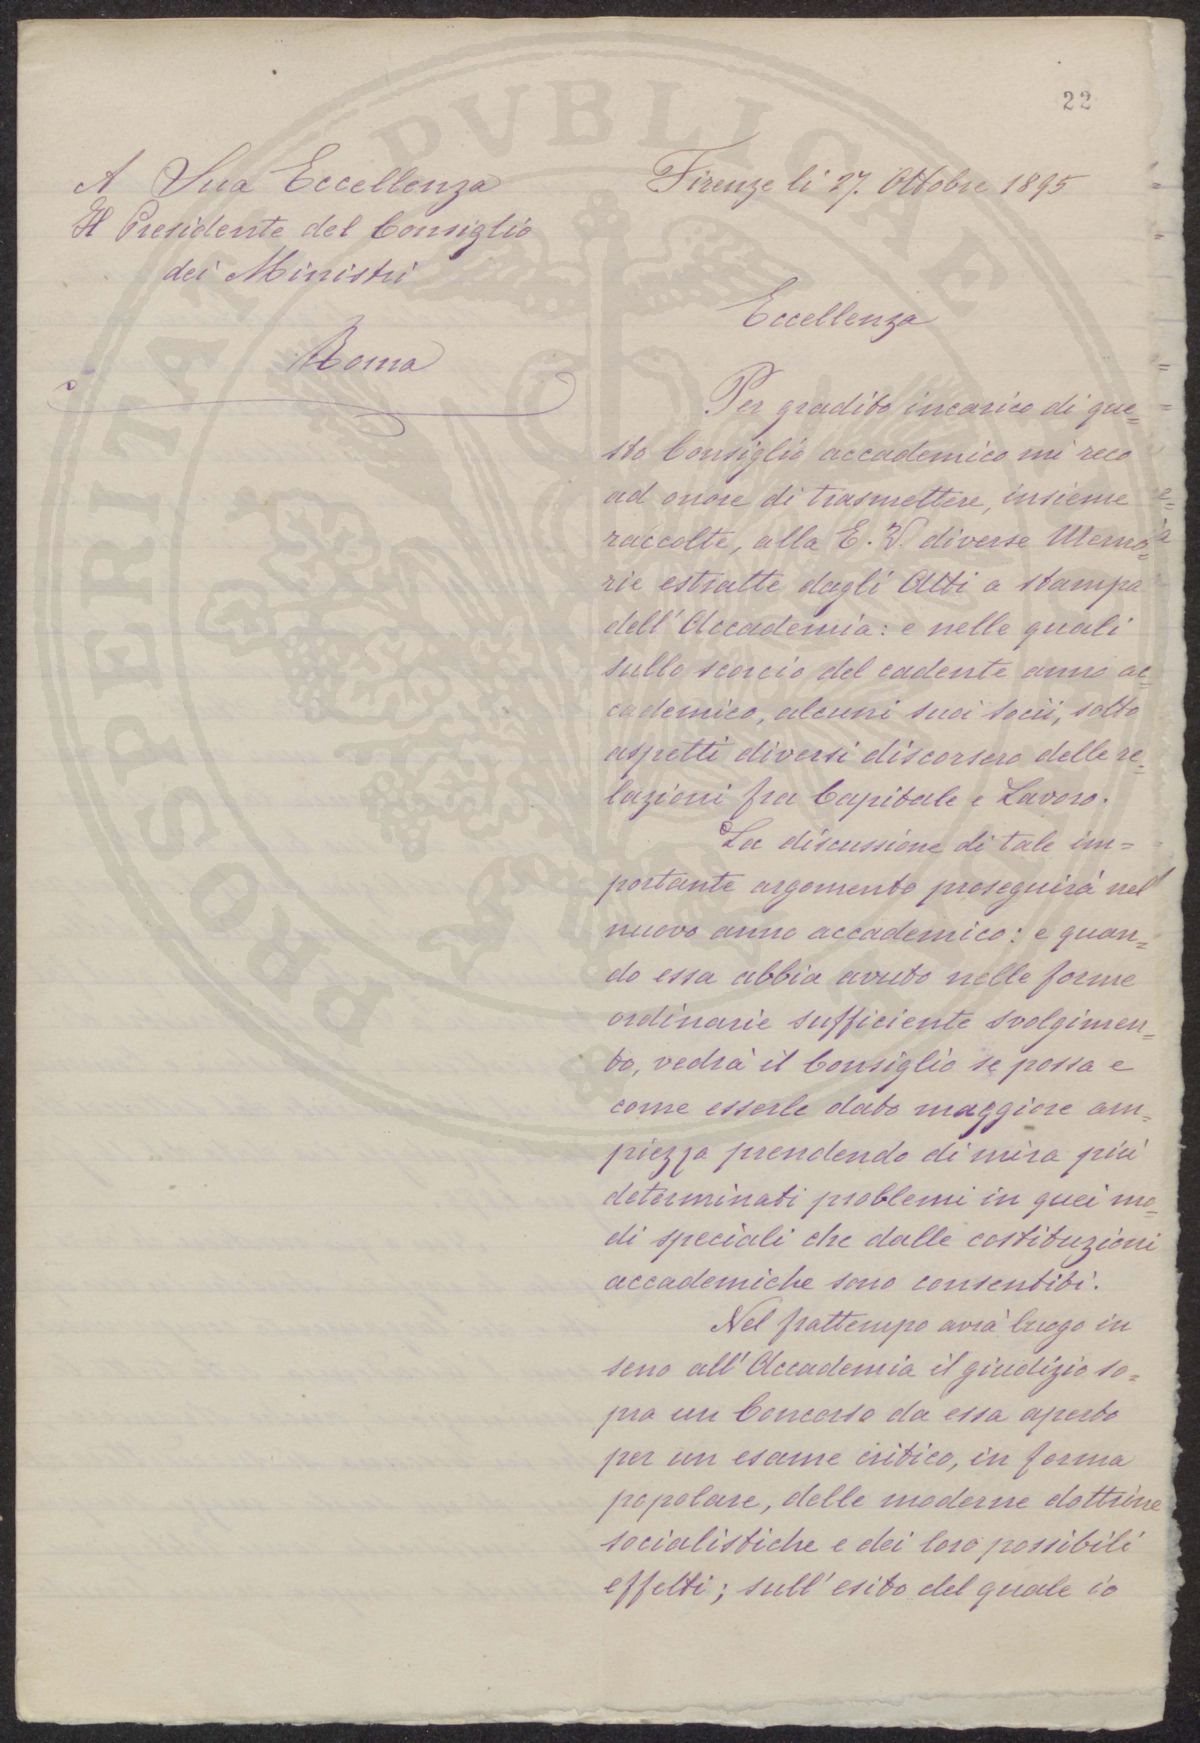 22
A Sua Eccellenza
Il Presidente del Consiglio
dei Ministri
Roma
Firenze li 27. Ottobre 1895
Eccellenza
Per gradito incarico di que=
sto Consiglio accademico mi reco
ad onore di trasmettere, insieme
raccolte, alla E. V. diverse Memo=
rie estratte dagli Atti a stampa
dell'Accademia: e nelle quali
sullo scorcio del cadente anno ac=
cademico, alcuni suoi socii, sotto
aspetti diversi discorsero delle re=
lazioni fra Capitale e Lavoro.
La discussione di tale im=
portante argomento proseguirà nel
nuovo anno accademico: e quan=
do essa abbia avuto nelle forme
ordinarie sufficiente svolgimen=
to, vedrà il Consiglio se possa e
come esserle dato maggiore am=
piezza prendendo di mira più
determinati problemi in quei mo=
di speciali che dalle costituzioni
accademiche sono consentiti.
Nel frattempo avrà luogo in
seno all'Accademia il giudizio so=
pra un Concorso da essa aperto
per un esame critico, in forma
popolare, delle moderne dottrine
socialistiche e dei loro possibili
effetti; sull'esito del quale io
PROSPERITATI PVBLICAE